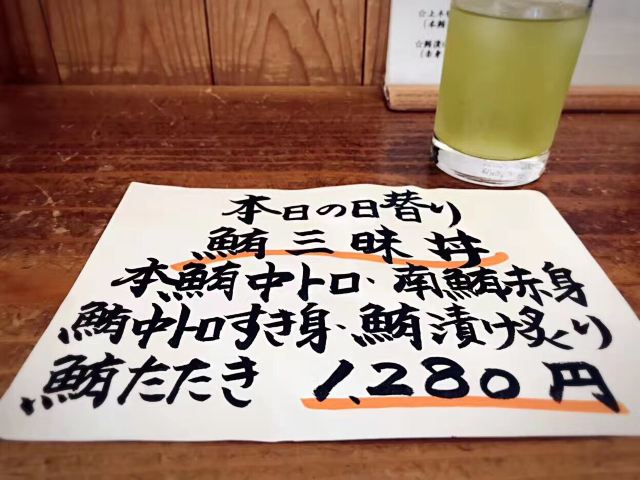 本日の日替り
鮪三昧丼
本鮪中トロ・南鮪赤身
鮪中トロすき身・鮪漬け炙り
鮪たたき 1,280円